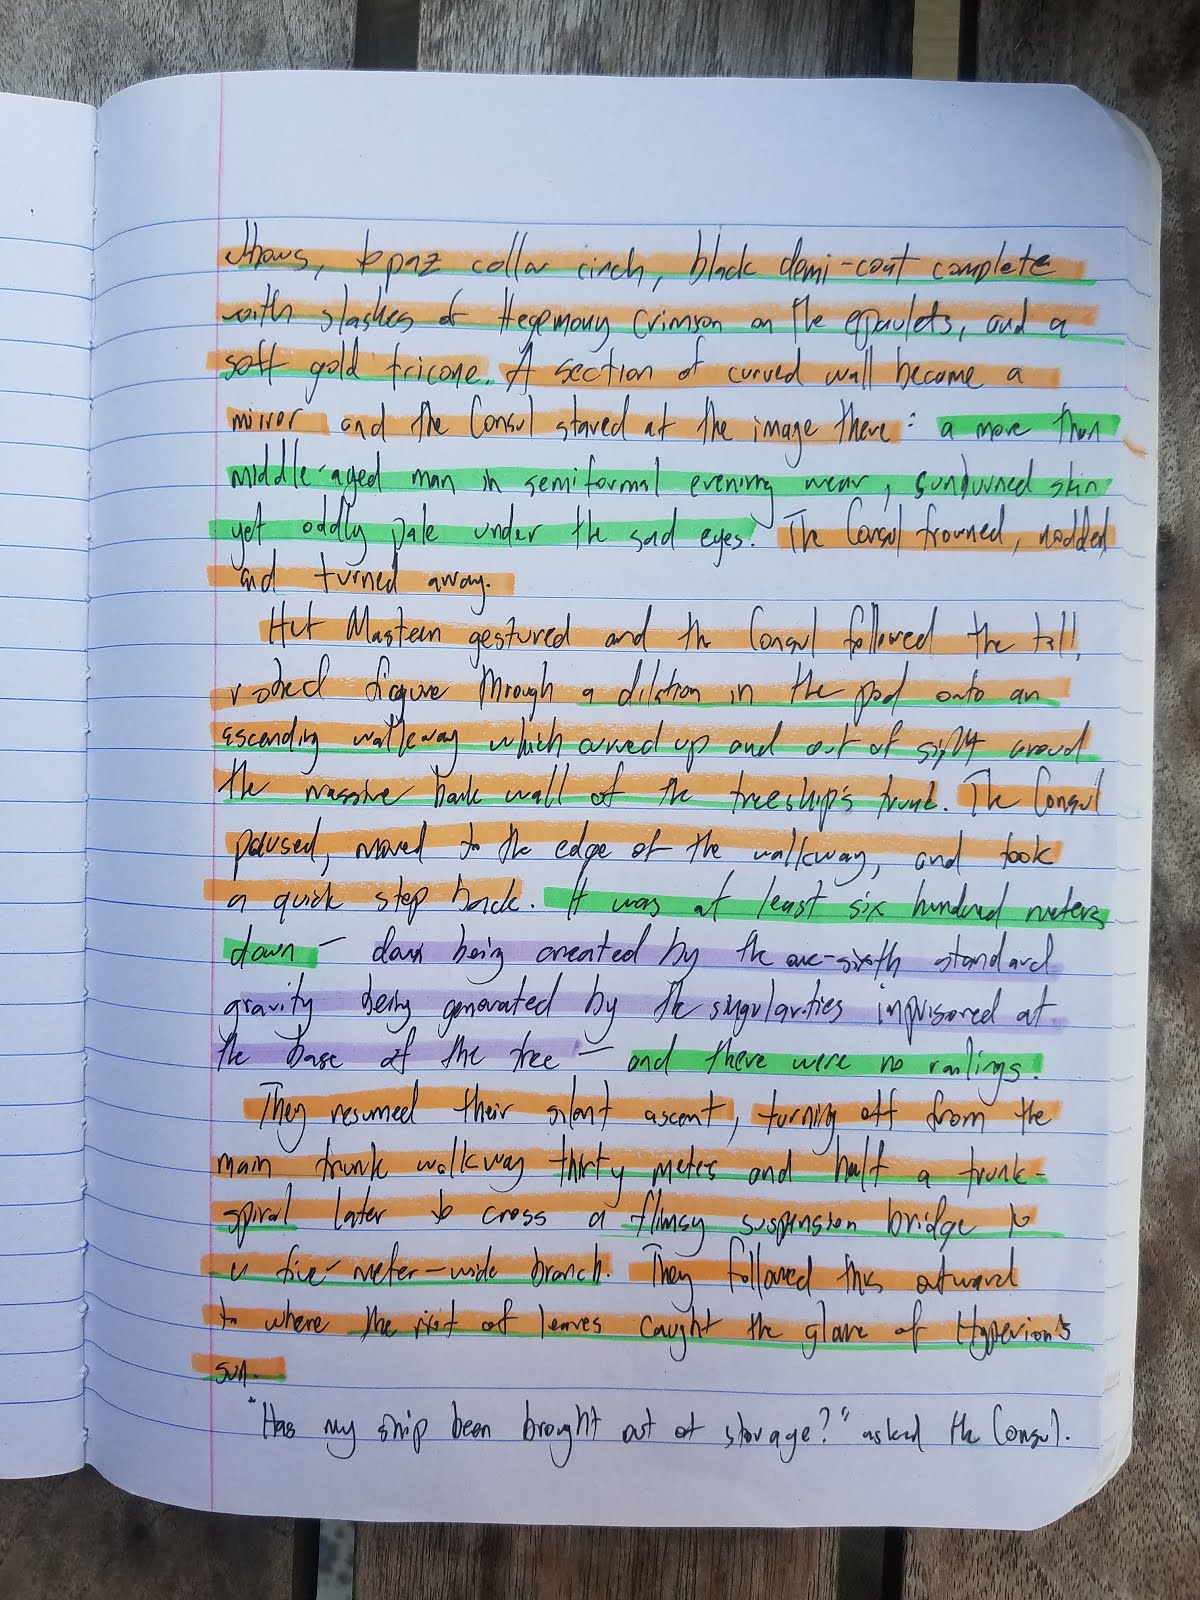 shows, topaz collar cinch, black demi-coat complete
with slashes of Hegemony crimson on the epaulets, and a
soft gold tricone. A section of curved wall became a
mirror and the Consul stared at the image there: a more than
middle-aged man in semiformal evening wear, sunburned skin
yet oddly pale under the sad eyes. The Consul frowned, nodded
and turned away.
Het Masteen gestured and the Consul followed the tall,
robed figure through a dilation in the pod onto an
ascending walkway which curved up and out of sight around
the massive bark wall of the treeship's trunk. The Consul
paused, moved to the edge of the walkway, and took
a quick step back. It was at least six hundred meters
down — down being created by the one-sixth standard
gravity being generated by the singularities imprisoned at
the base of the tree — and there were no railings.
They resumed their silent ascent, turning off from the
main trunk walkway thirty meters and half a trunk-
spiral later to cross a flimsy suspension bridge to
a five-meter-wide branch. They followed this outward
to where the riot of leaves caught the glare of Hyperion's
sun.
"Has my ship been brought out of storage?" asked the Consul.